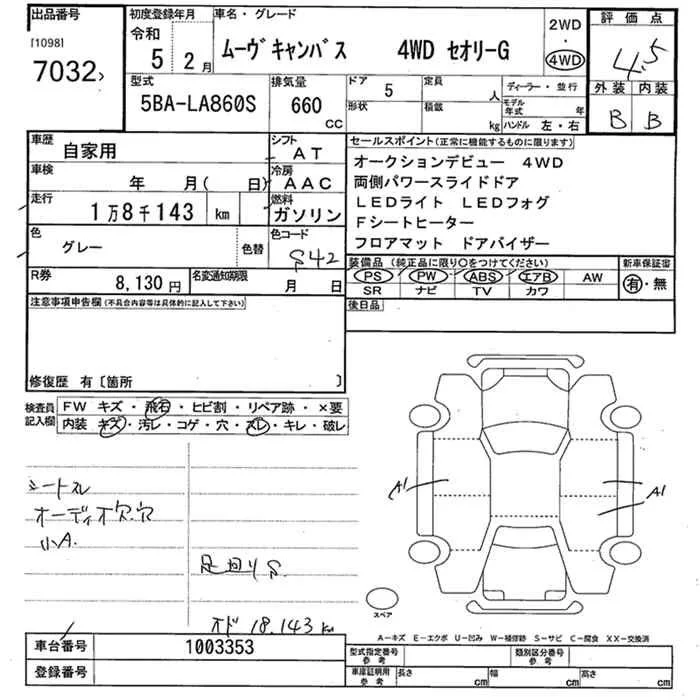 出品番号 初度登録年月 車名・グレード 2WD・4WD 評価点
[1098] 令和
7032 5 2月 ムーヴキャンバス 4WD セオリーG 4.5
型式 排気量 ドア 5 定員 人 ディーラー・並行 外装 内装
5BA-LA860S 660 CC 形状 積載 kg モデル年式 年 B B
ハンドル 左・右
車歴 自家用 シフト AT セールスポイント(正常に機能するものに限ります)
車検 年 月( 日) 冷房 AAC オークションデビュー 4WD
走行 1万8千143 km 燃料 ガソリン 両側パワースライドドア
LEDライト LEDフォグ
色 グレー 色替 色コード S42 Fシートヒーター
フロアマット ドアバイザー
R券 8,130円 名変通知期限 月 日 装備品(純正品に限り○をつけてください) 新車保証書
PS PW ABS エアB AW 有・無
SR ナビ TV カワ
注意事項申告欄(不具合内容等は具体的に記入して下さい) 後日品
修復歴 有〔箇所 〕
検査員記入欄 FW キズ・飛石・ヒビ割・リペア跡・×要
内装 キズ・汚レ・コゲ・穴・スレ・キレ・破レ
シートスレ A1 A1
オーディオ欠 穴
小A.
足回りS
スペア
オド 18.143 km
A－キズ E－エクボ U－凹み W－補修跡 S－サビ C－腐食 XX－交換済
車台番号 1003353 型式指定番号 参考 類別区分番号 参考
登録番号 車庫証明用 参考 長さ cm 幅 cm 高さ cm